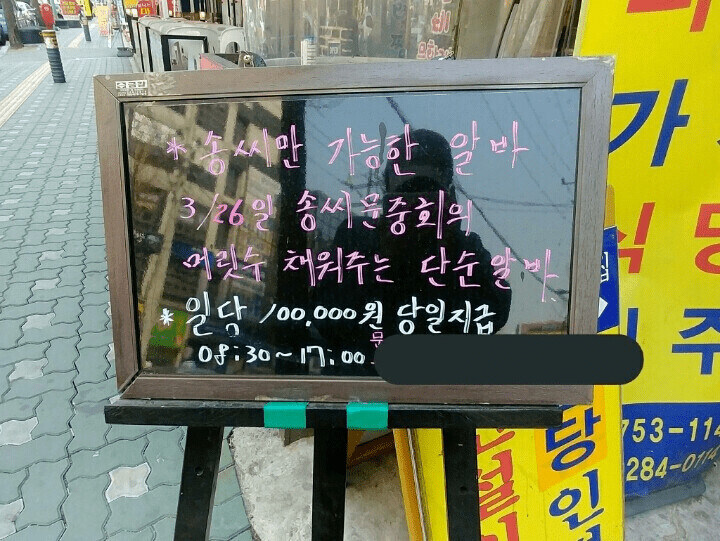 * 송씨만 가능한 알바
3/26일 송씨문중회의
머릿수 채워주는 단순알바.
* 일당 100,000원 당일지급
08:30~17:00
문
753-114
284-0114
당
인